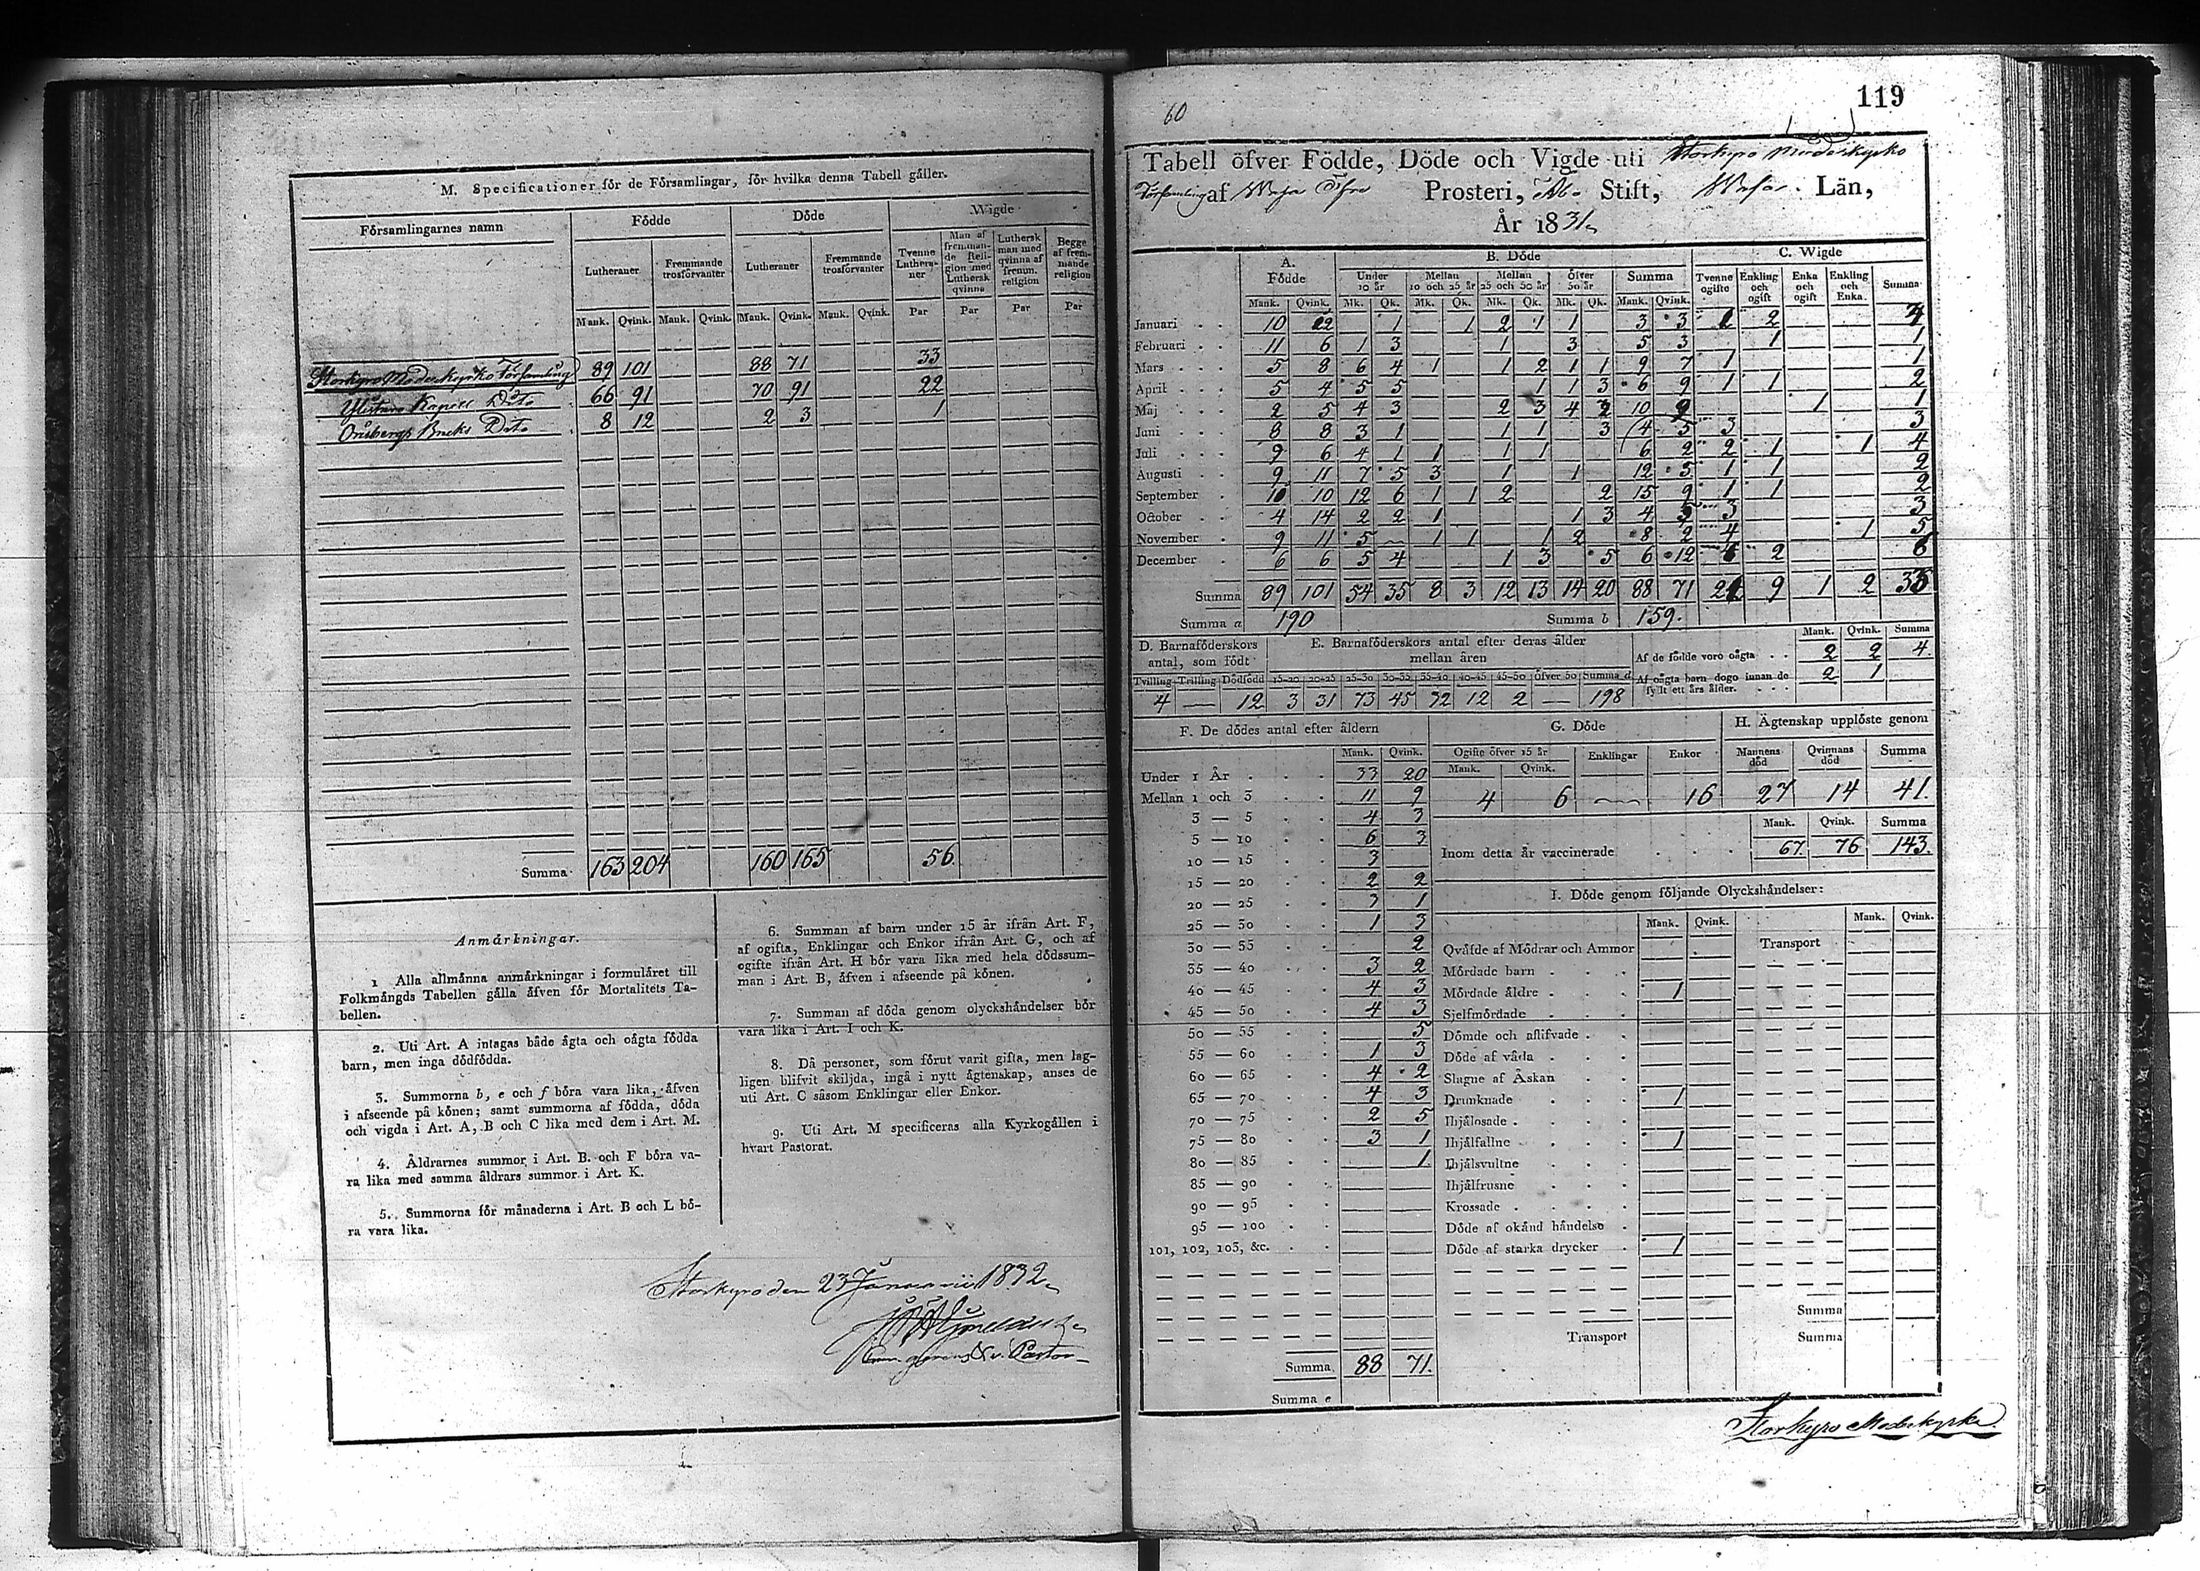 M. Specificationer för de Församlingar, för hvilka denna Tabell gäller.
Församlingarnes namn Födde Döde Wigde
Lutheraner Fremmande trosförvanter Lutheraner Fremmande trosförvanter Tvenne Luthera-ner Man af fremman-de Reli-gion med Luthersk qvinna Luthersk man med qvinna af fremm. religion Begge af frem-mande religion
Mank. Qvink. Mank. Qvink. Mank. Qvink. Mank. Qvink. Par Par Par Par
Storkyro Moderkyrko Församling 89 101 88 71 33
Ylistaro Kapell Dito 66 91 70 91 22
Orisbergs Bruks Dito 8 12 2 3 1
Summa 163 204 160 165 56
Anmärkningar.
1 Alla allmänna anmärkningar i formuläret till
Folkmängds Tabellen gälla äfven för Mortalitets Ta-
bellen.
2. Uti Art. A intagas både ägta och oägta födda
barn, men inga dödfödda.
3. Summorna b, e och f böra vara lika, äfven
i afseende på könen; samt summorna af födda, döda
och vigda i Art. A, B och C lika med dem i Art. M.
4. Åldrarnes summor i Art. B. och F böra va-
ra lika med samma åldrars summor i Art. K.
5. Summorna för månaderna i Art. B och L bö-
ra vara lika.
6. Summan af barn under 15 år ifrån Art. F,
af ogifta, Enklingar och Enkor ifrån Art. G, och af
ogifte ifrån Art. H bör vara lika med hela dödssum-
man i Art. B, äfven i afseende på könen.
7. Summan af döda genom olyckshändelser bör
vara lika i Art. I och K.
8. Då personer, som förut varit gifta, men lag-
ligen blifvit skiljda, ingå i nytt ägtenskap, anses de
uti Art. C såsom Enklingar eller Enkor.
9. Uti Art. M specificeras alla Kyrkogällen i
hvart Pastorat.
Storkyro den 23 Januarii 1832
v. Pastor
60
119
Tabell öfver Födde, Döde och Vigde uti Storkyro Moderkyrko
Församling af Wasa Öfre Prosteri, Åbo Stift, Wasa Län,
År 1831
A. Födde B. Döde C. Wigde
Under 10 år Mellan 10 och 25 år Mellan 25 och 50 år Öfver 50 år Summa Tvenne ogifte Enkling och ogift Enka och ogift Enkling och Enka. Summa
Mank. Qvink. Mk. Qk. Mk. Qk. Mk. Qk. Mk. Qk. Mank. Qvink.
Januari 10 12 1 1 2 1 1 3 3 2 2 4
Februari 11 6 1 3 1 3 5 3 1 1
Mars 5 8 6 4 1 1 2 1 1 9 7 1 1
April 5 4 5 5 1 1 3 6 9 1 1 2
Maj 2 5 4 3 2 3 4 2 10 1 1
Juni 8 8 3 1 1 1 3 4 5 3 3
Juli 9 6 4 1 1 1 1 6 2 2 1 1 4
Augusti 9 11 7 5 3 1 1 12 5 1 1 2
September 10 10 12 6 1 1 2 2 15 9 1 1 2
October 4 14 2 2 1 1 3 4 5 3 3
November 9 11 5 — 1 1 1 2 8 2 4 1 5
December 6 6 5 4 1 3 5 6 12 2
Summa 89 101 54 35 8 3 12 13 14 20 88 71 21 9 1 2 33
Summa a 190 Summa b 159.
D. Barnaföderskors antal, som födt
Tvilling Trilling Dödfödd
4 — 12
E. Barnaföderskors antal efter deras ålder
mellan åren
15-20 20-25 25-30 30-35 35-40 40-45 45-50 öfver 50 Summa d
3 31 73 45 32 12 2 — 198
Mank. Qvink. Summa
Af de födde voro oägta 2 2 4.
Af oägta barn dogo innan de fyllt ett års ålder. 2 1
F. De dödes antal efter åldern
Mank. Qvink.
Under 1 År 33 20
Mellan 1 och 3 11 9
3 — 5 4 3
5 — 10 6 3
10 — 15 3
15 — 20 2 2
20 — 25 3 1
25 — 30 1 3
30 — 35 2
35 — 40 3 2
40 — 45 4 3
45 — 50 4 3
50 — 55 5
55 — 60 1 3
60 — 65 4 2
65 — 70 4 3
70 — 75 2 5
75 — 80 3 1
80 — 85 1
85 — 90
90 — 95
95 — 100
101, 102, 103, &c.
Summa 88 71.
Summa e
G. Döde
Ogifte öfver 15 år Enklingar Enkor
Mank. Qvink.
4 6 — 16
H. Ägtenskap upplöste genom
Mannens död Qvinnans död Summa
27 14 41.
Mank. Qvink. Summa
Inom detta år vaccinerade 67. 76 143.
I. Döde genom följande Olyckshändelser:
Mank. Qvink. Mank. Qvink.
Qväfde af Mödrar och Ammor Transport
Mördade barn
Mördade äldre 1
Sjelfmördade
Dömde och aflifvade
Döde af våda
Slagne af Åskan
Drunknade 1
Ihjälosade
Ihjälfallne 1
Ihjälsvultne
Ihjälfrusne
Krossade
Döde af okänd händelse
Döde af starka drycker 1
Summa
Transport Summa
Storkyro Moderkyrka